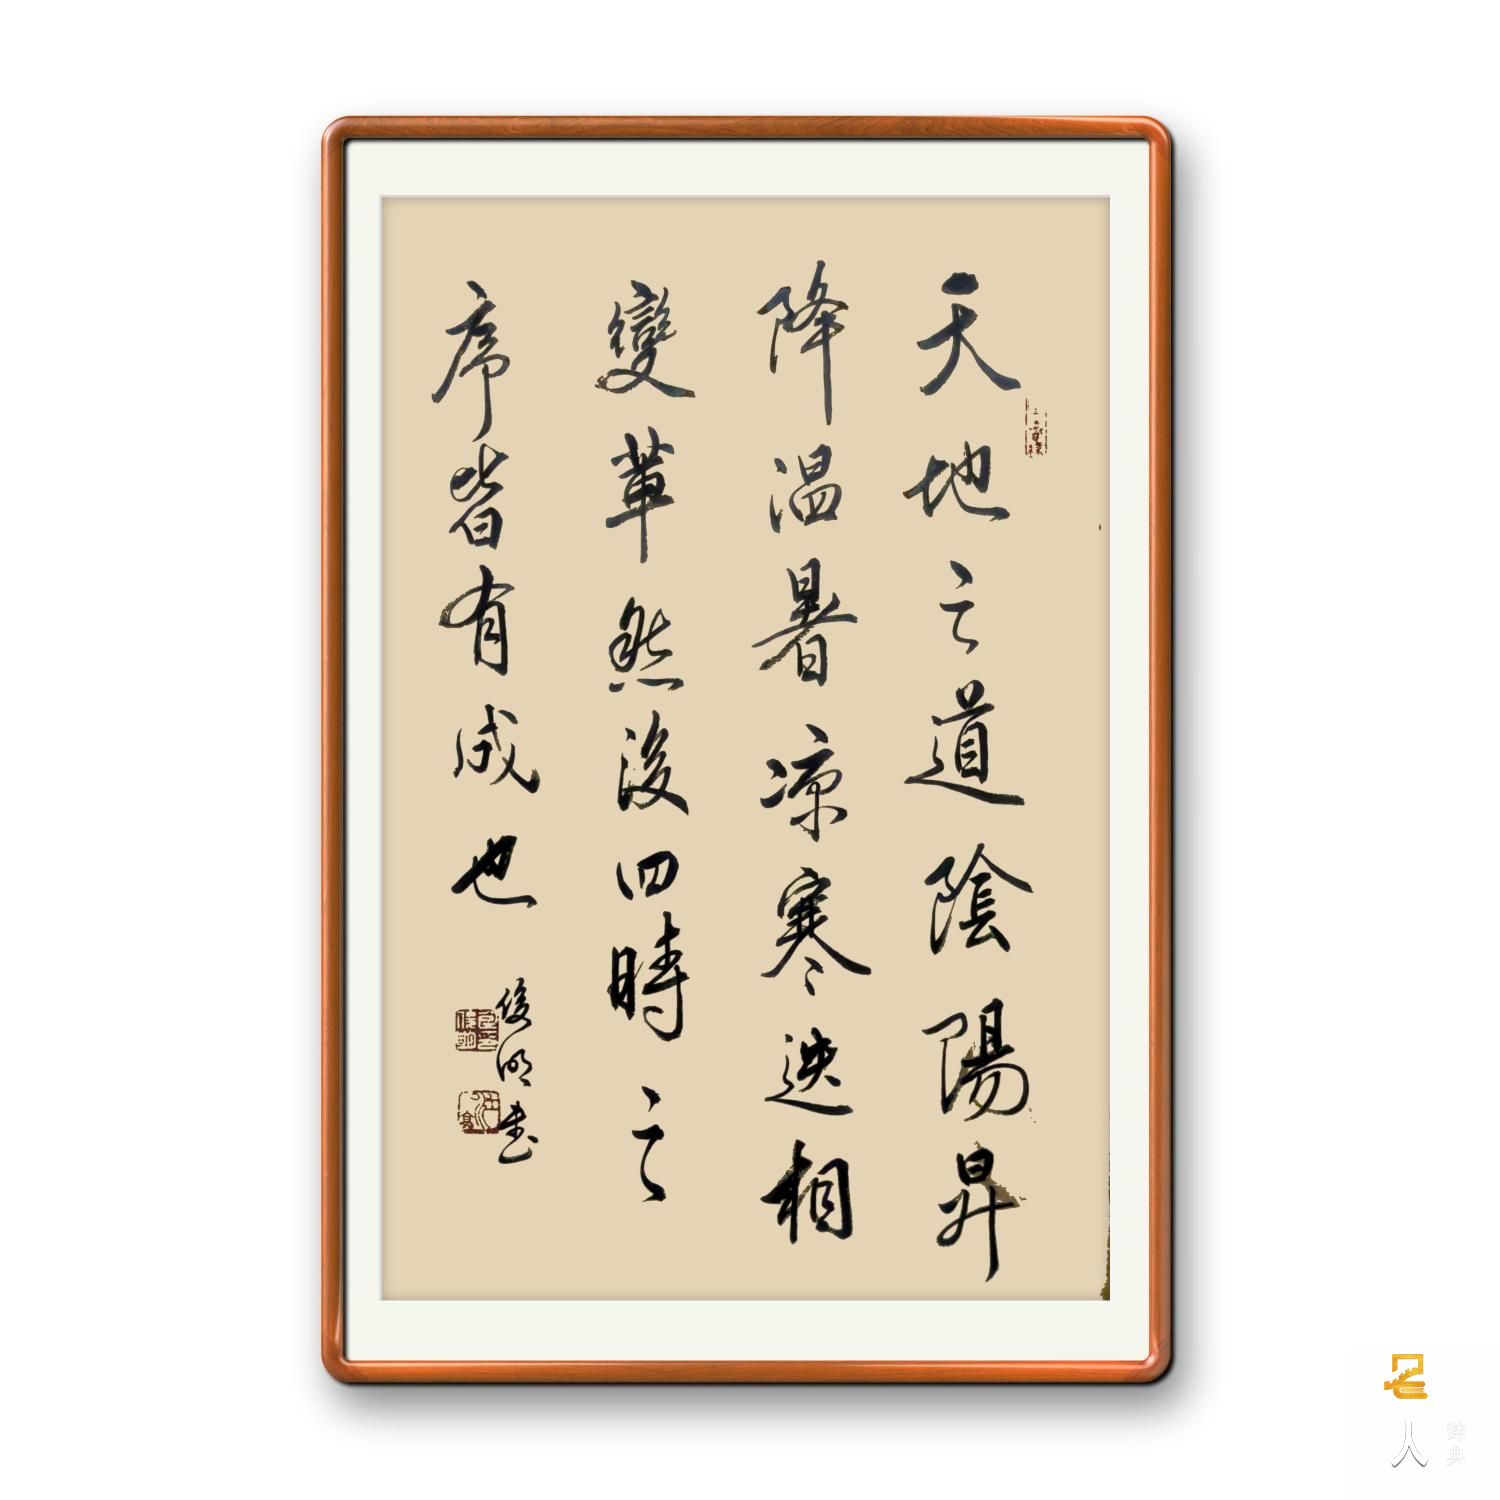 天地之道陰陽昇
降温暑凉寒迭相
變革然後四時之
序皆有成也
俊明書
人
辞典